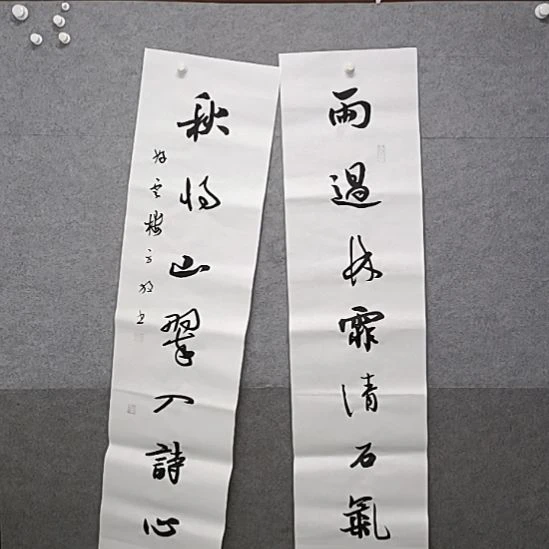 雨過林霏清石氣
秋將山翠入詩心